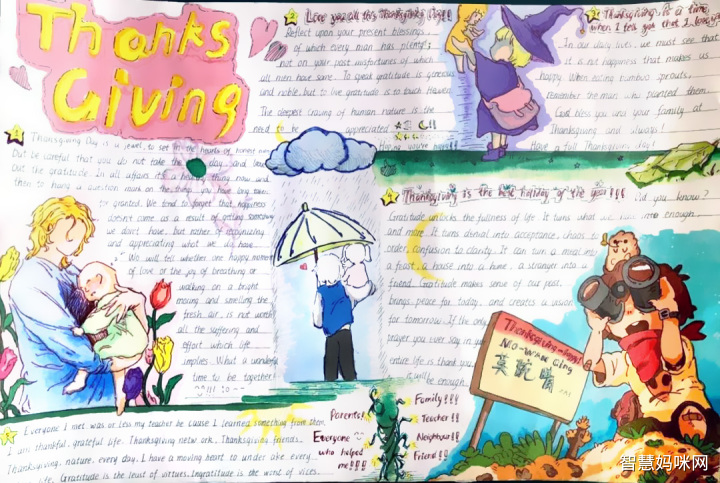 Thanks
Giving
Love you all this Thanksgiving Day!!
Reflect upon your present blessings
of which every man has plenty;
not on your past misfortunes of which
all men have some. To speak gratitude is
and noble, but to live gratitude is to touch Heaven
The deepest craving of human nature is the
need to be appreciated
Thanksgiving is a time
when I tell you that I love
In our daily lives, we must see that
it is not happiness that makes us
happy. When eating bamboo sprouts,
remember the man who planted them.
God bless you and your family at
Thanksgiving and always!
Have a full Thanksgiving day!
Thanksgiving Day is a jewel, to set in the hearts of honest men
But be careful that you do not take the day, and leave
Out the gratitude. In all affairs it's a healthy thing now and
then to hang a question mark on the things you have long taken
for granted. We tend to forget that happiness
doesn't come as a result of getting something
we don't have, but rather of recognizing
and appreciating what we do have.
We will tell whether one happy moment
of love or the joy of breathing or
walking on a bright
moring and smelling the
fresh air, is not worth
all the suffering and
effort which life
implies. What a wonderful
time to be together
Thanksgiving is the best holiday of the year!!! Did you know?
Gratitude unlocks the fullness of life. It turns what we have into enough,
and more. It turns denial into acceptance, chaos to
order, confusion to clarity. It can turn a meal into
a feast, a house into a home, a stranger into a
friend. Gratitude makes sense of our past,
brings peace for today, and creates a vision
for tomorrow. If the only
prayer you ever say in your
entire life is thank you,
it will be enough.
Thanksgiving
莫
Everyone I met was or less my teacher be cause I learned something from them.
I am thankful, grateful life. Thanksgiving netw ork. Thanksgiving friends.
Thanksgiving, nature, every day. I have a moving heart to under ake every
life. Gratitude is the least of virtues. Ingratitude is the worst of vices.
Parents
Everyone
who helped
me!!!
Family!!!
Teacher!!
Neighbour!!
Friend!!
智慧妈咪网